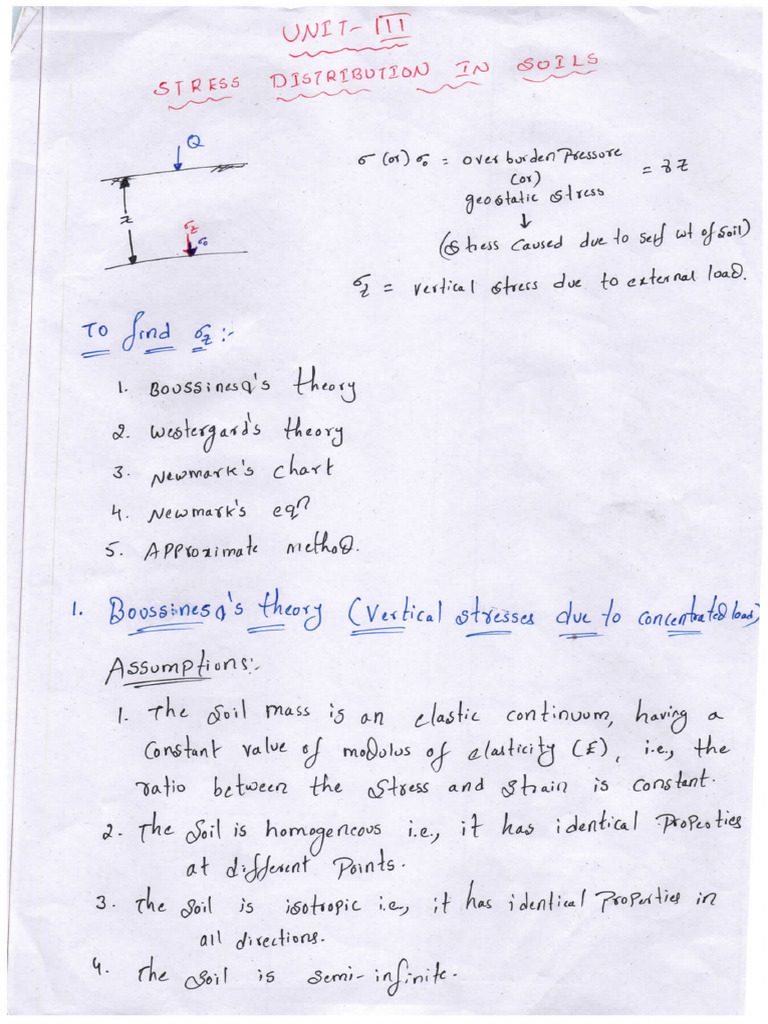 UNIT-III
STRESS DISTRIBUTION IN SOILS
Q
z
σz
σ0
σ (or) σ0 = over burden Pressure
(or)
geostatic stress
= γZ
↓
(Stress caused due to self wt of soil)
σz = vertical stress due to external load.
To find σz :-
1. Boussinesq's theory
2. Westergard's theory
3. Newmark's chart
4. Newmark's eqn
5. Approximate method.
1. Boussinesq's theory (Vertical stresses due to concentrated load)
Assumptions:-
1. The soil mass is an elastic continuum, having a
constant value of modulus of elasticity (E), i.e., the
ratio between the stress and strain is constant.
2. The soil is homogeneous i.e., it has identical Properties
at different Points.
3. The soil is isotropic i.e., it has identical Properties in
all directions.
4. The soil is semi-infinite.